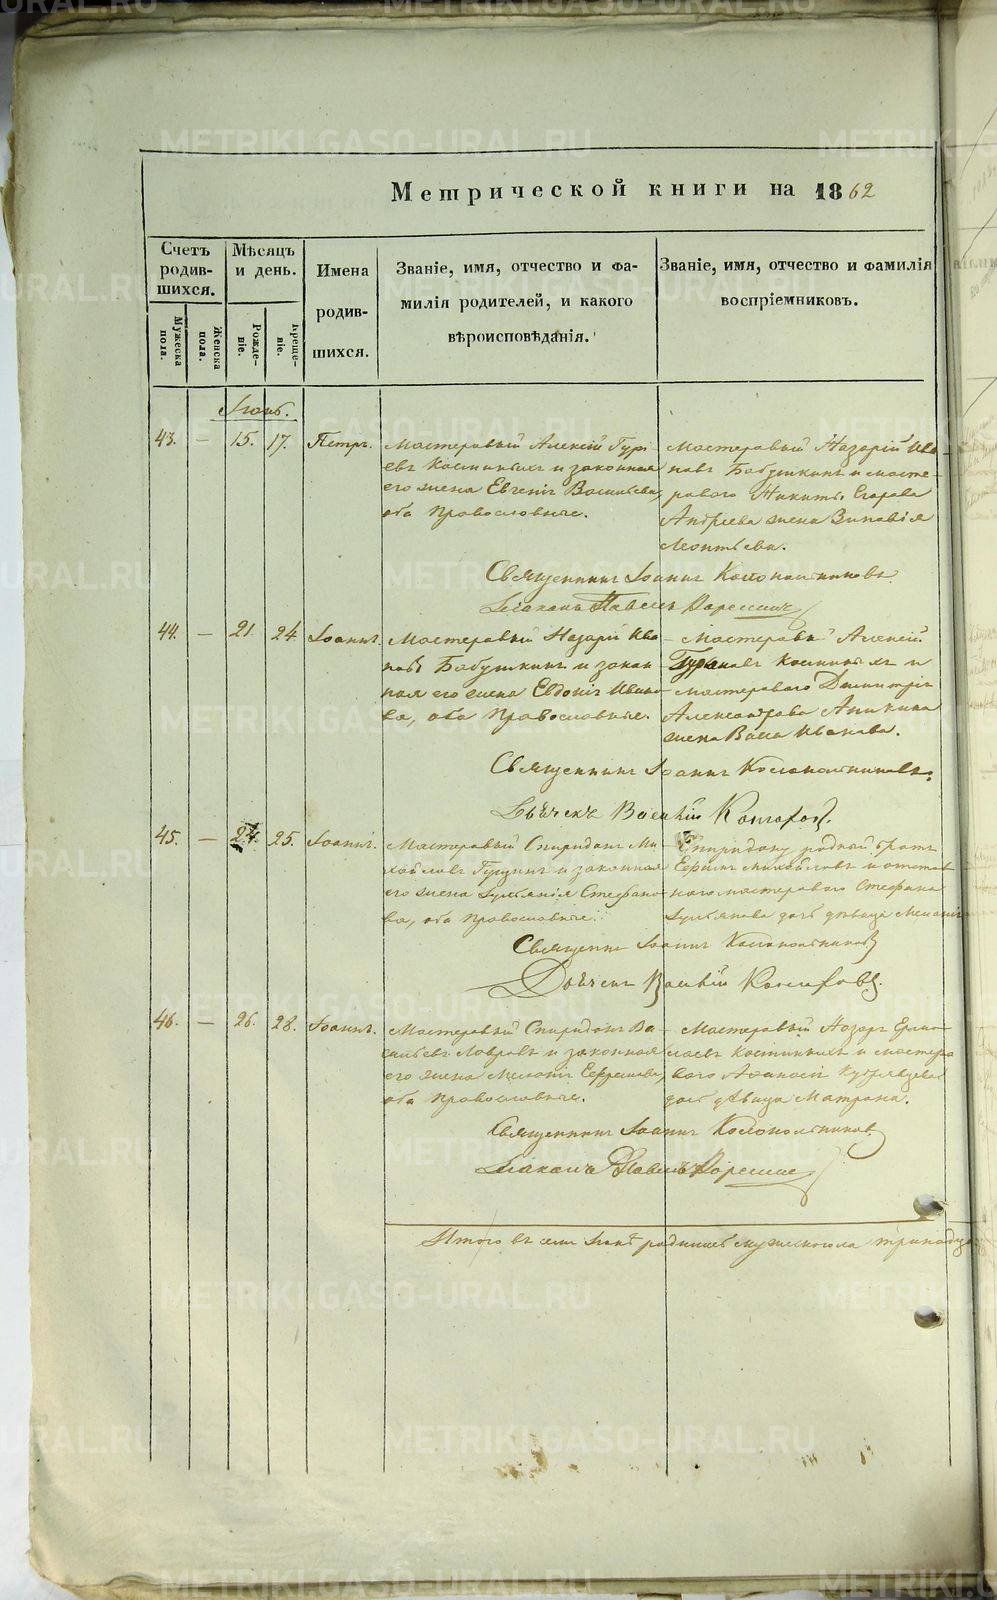 Метрической книги на 1862
Счетъ родившихся.
Мѣсяцъ и день.
Имена родившихся.
Званіе, имя, отчество и фамилія родителей, и какого вѣроисповѣданія.
Званіе, имя, отчество и фамилія воспріемниковъ.
Мужеска пола.
Женска пола.
Рожденіе.
Крещеніе.
Іюнь.
43. — 15. 17. Петръ.
Мастеровый Алексій Гурі-
евъ Костиныхъ и законная
его жена Евгенія Васильева,
оба Православные.
Мастеровый Назарій Ива
новъ Бабушкинъ и масте-
роваго Никиты Егорова
Андреева жена Зиновія
Леонтьева.
Священникъ Іоаннъ Колокольниковъ.
Діаконъ Павелъ
44. — 21. 24. Іоаннъ.
Мастеровый Назарій Ива
новъ Бабушкинъ и закон
ная его жена Евдокія Ивано-
ва, оба Православные.
Мастеровый Алексій
Костиныхъ и
мастероваго Димитрія
Александрова Аникина
жена Васса Иванова.
Священникъ Іоаннъ Колокольниковъ.
Дьячекъ Василій
45. — 24. 25. Іоаннъ.
Мастеровый Спиридонъ Ми
хайловъ и законная
его жена Іуліанія Стефано-
ва, оба Православные.
Спиридону родной братъ
Ефимъ Михайловъ и отстав
наго мастероваго Стефана
дочь дѣвица Меланія
Священникъ Іоаннъ Колокольниковъ
Дьячекъ Василій
46. — 26. 28. Іоаннъ.
Мастеровый Спиридонъ Ва
сильевъ Лавровъ и законная
его жена Меланія Ефремова,
оба Православные.
Мастеровый Назаръ Ермо
лаевъ Костиныхъ и мастеро
ваго Афанасія Кудрявцева
дочь дѣвица Матрона.
Священникъ Іоаннъ Колокольниковъ
Діаконъ Павелъ
Итого въ семъ Іюнѣ родилось мужескаго пола тринадца
METRIKI.GASO-URAL.RU